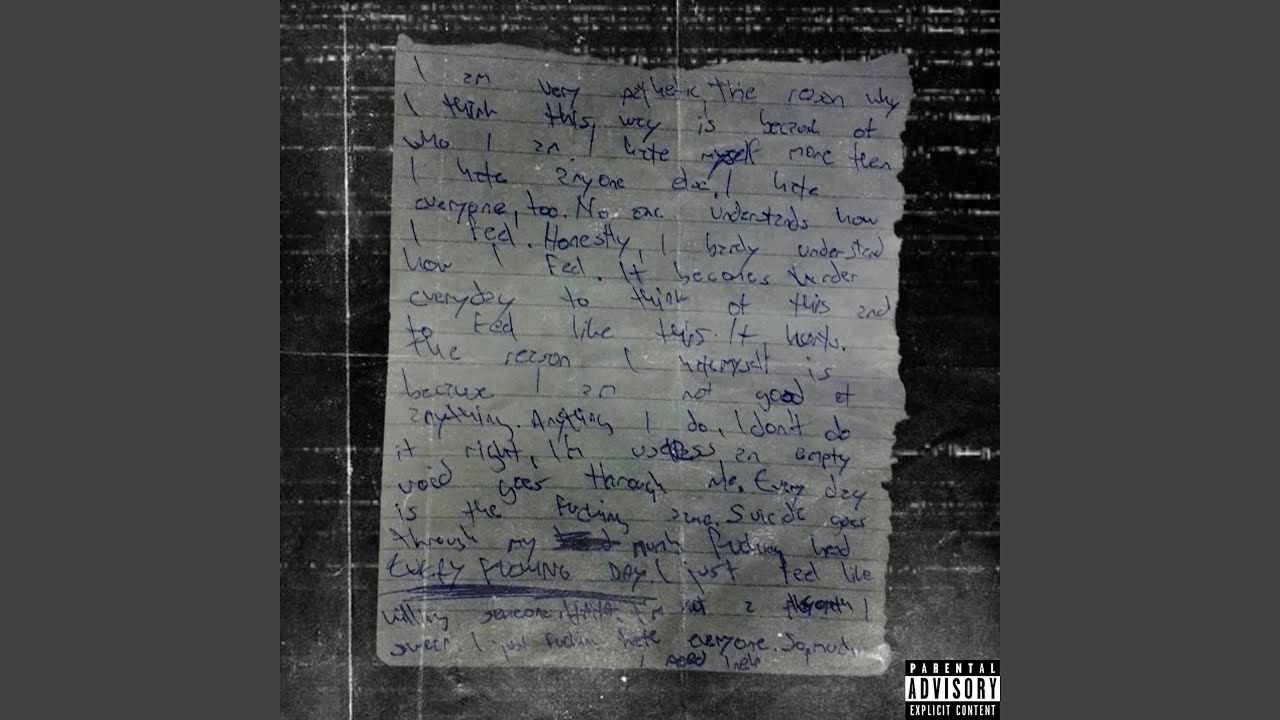 I am very pathetic, the reson why
I think this way is because of
who I am. I hate myself more then
I hate anyone else, I hate
everyone, too. No one understands how
I feel. Honestly, I barely understand
how I feel. It becomes harder
everyday to think of this and
to feel like this. It hurts.
the reason I hate myself is
because I am not good at
anything. Anything I do, I don't do
it right, I'm useless an empty
void goes through me. Every day
is the fucking same. Suicide goes
through my fucking head
EVERY FUCKING DAY I just feel like
killing someone. I'm not a I
swear. I just fuckin hate everyone. So much
I need help
PARENTAL
ADVISORY
EXPLICIT CONTENT